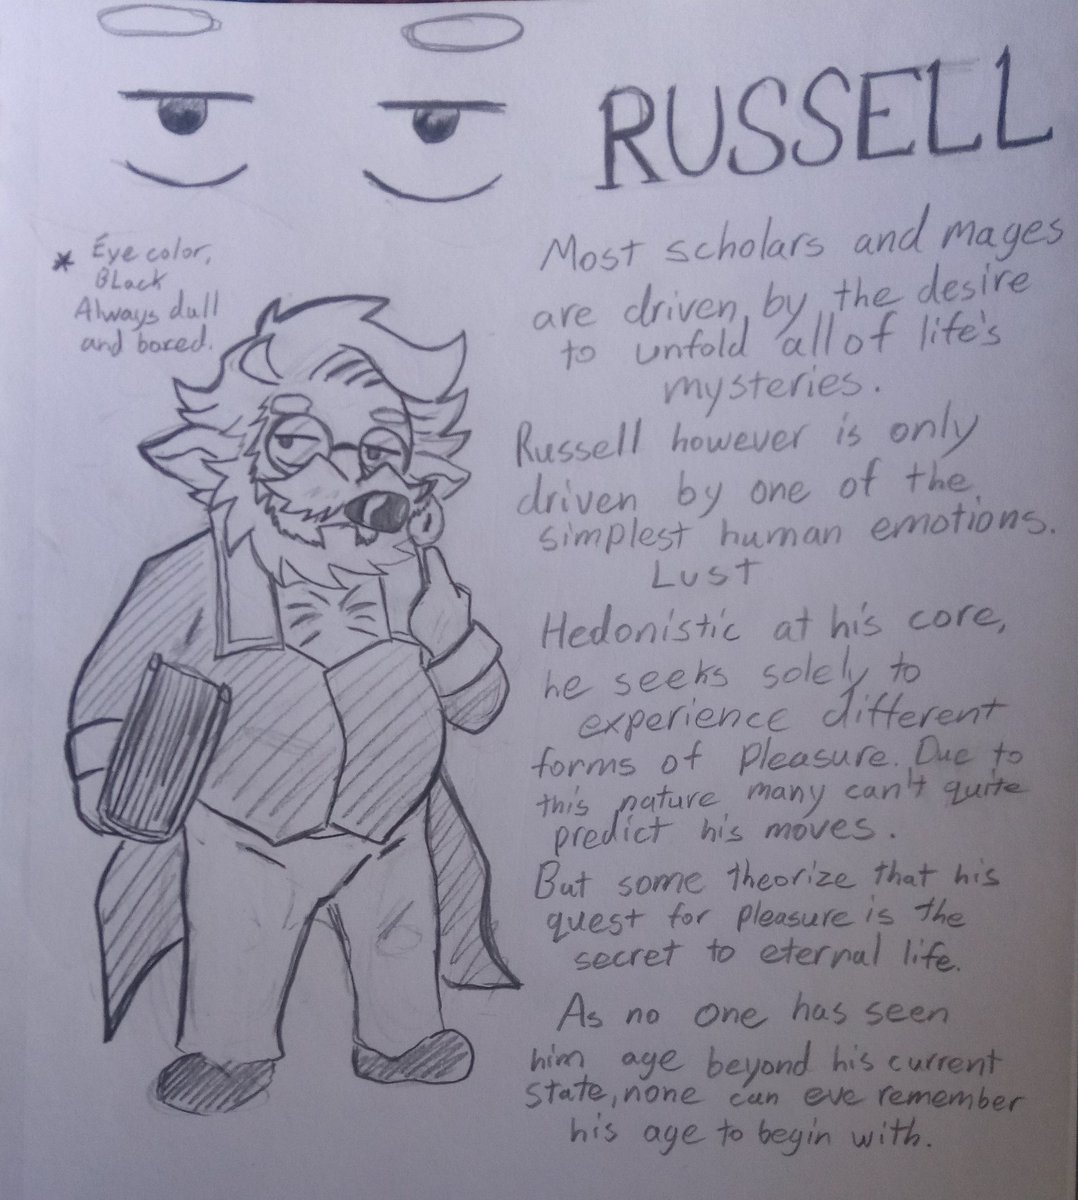 RUSSELL
* Eye color,
Black
Always dull
and bored.
Most scholars and mages
are driven by the desire
to unfold all of life's
mysteries.
Russell however is only
driven by one of the
simplest human emotions.
Lust
Hedonistic at his core,
he seeks solely to
experience different
forms of pleasure. Due to
this nature many can't quite
predict his moves.
But some theorize that his
quest for pleasure is the
secret to eternal life.
As no one has seen
him age beyond his current
state, none can eve remember
his age to begin with.